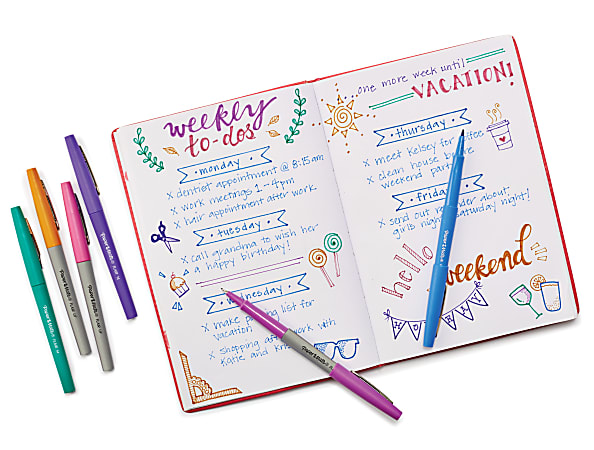 weekly
to-dos
monday
x dentist appointment @ 8:15am
x work meetings 1-4pm
x hair appointment after work
tuesday
x call grandma to wish her
a happy birthday!
wednesday
x make packing list for
vacation
x shopping after work with
Katie and
...one more week until
VACATION!
thursday
x meet kelsey for coffee
x clean house before
weekend party
friday
x send out reminder about
girls night saturday night!
hello
weekend
Paper:Mate
Paper:Mate
Paper:Mate
Paper:Mate
Paper:Mate
Paper:Mate